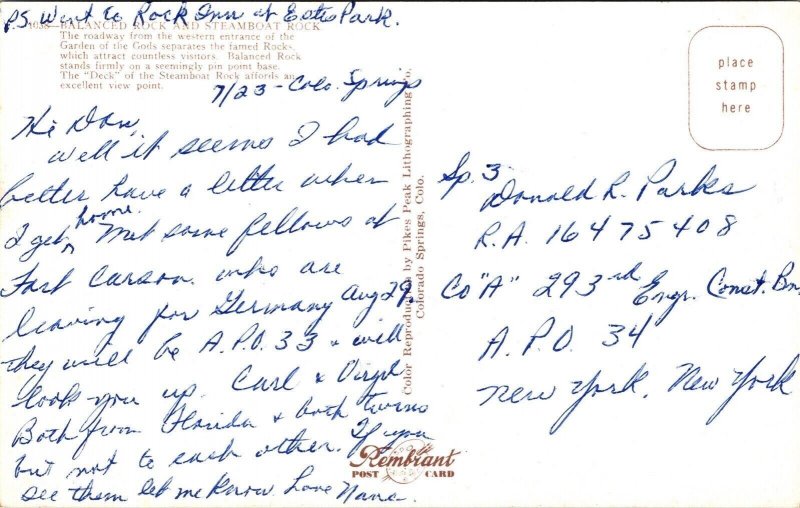 PS. Went to Rock Inn at Estes Park.
C-4038—BALANCED ROCK AND STEAMBOAT ROCK
The roadway from the western entrance of the
Garden of the Gods separates the famed Rocks,
which attract countless visitors. Balanced Rock
stands firmly on a seemingly pin point base.
The "Deck" of the Steamboat Rock affords an
excellent view point.
7/23 - Colo. Springs
Hi Don,
Well it seems I had
better have a letter when
I get home. Met some fellows at
Fort Carson. who are
leaving for Germany Aug 29,
they will be A.P.O. 33 & will
look you up. Carl & Virgil
Both from Florida & both twins
but not to each other. If you
see them let me know. Love Nana.
Color Reproductions by Pikes Peak Lithographing Co.
Colorado Springs, Colo.
Rembrant
POST CARD
place
stamp
here
Sp. 3 Donald R. Parks
R.A. 16475408
Co "A" 293rd Engr. Const. Bn
A.P.O. 34
New York, New York